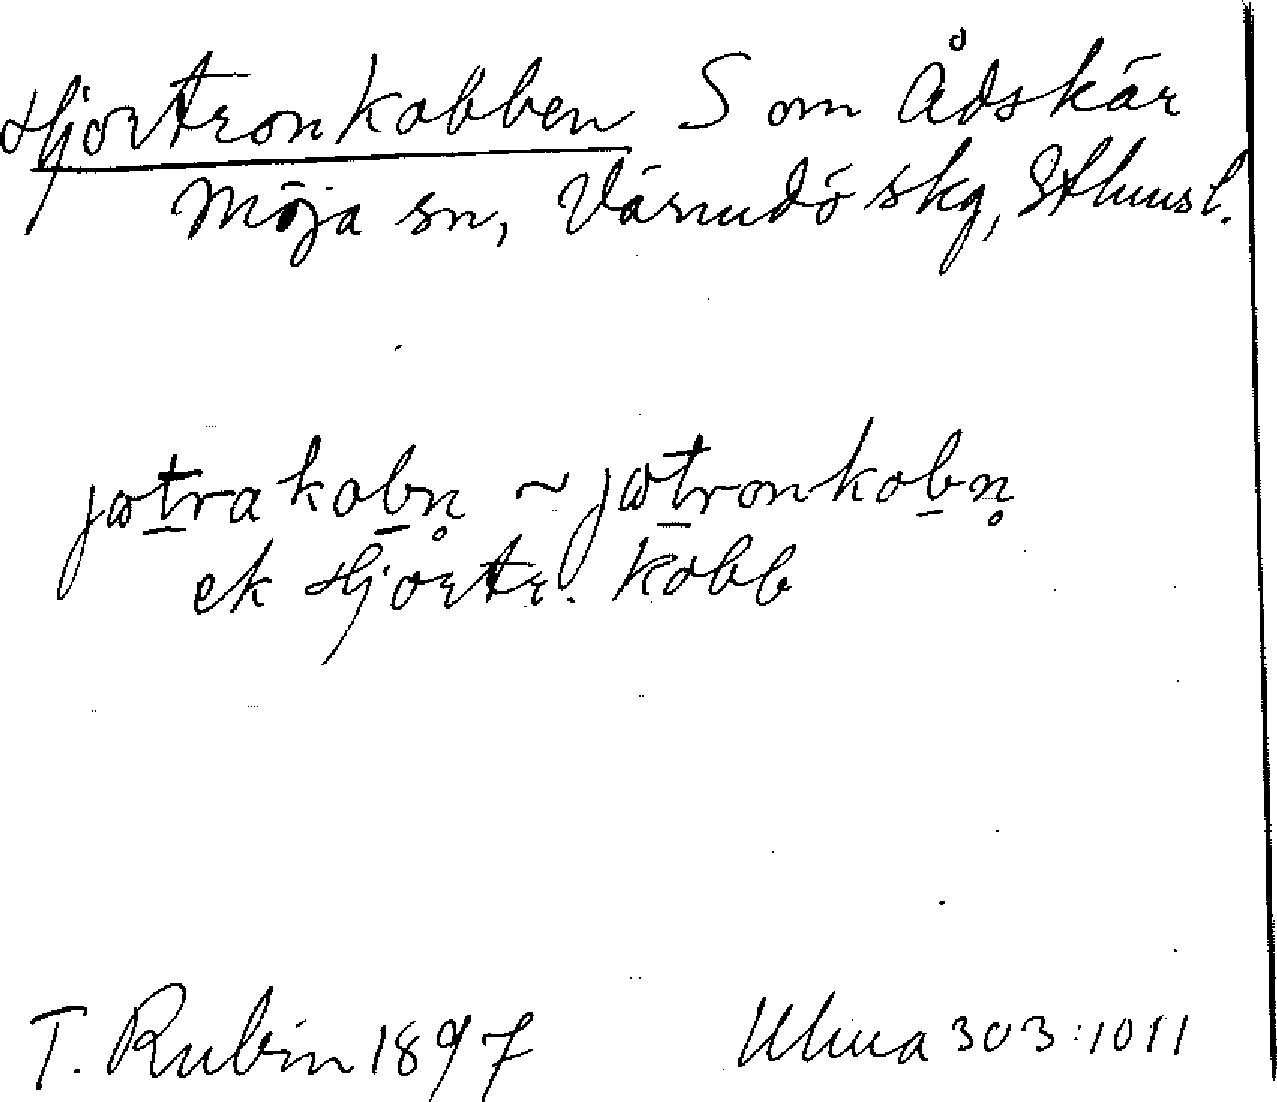 Hjortronkobben S om Ådskär
Möja sn, Värmdö skg, Sthms l.
jɷtrakobn̥ ~ jɷtronkobn̥
ek Hjortr. kobb
T. Rubin 1897 Ulma 303:1011